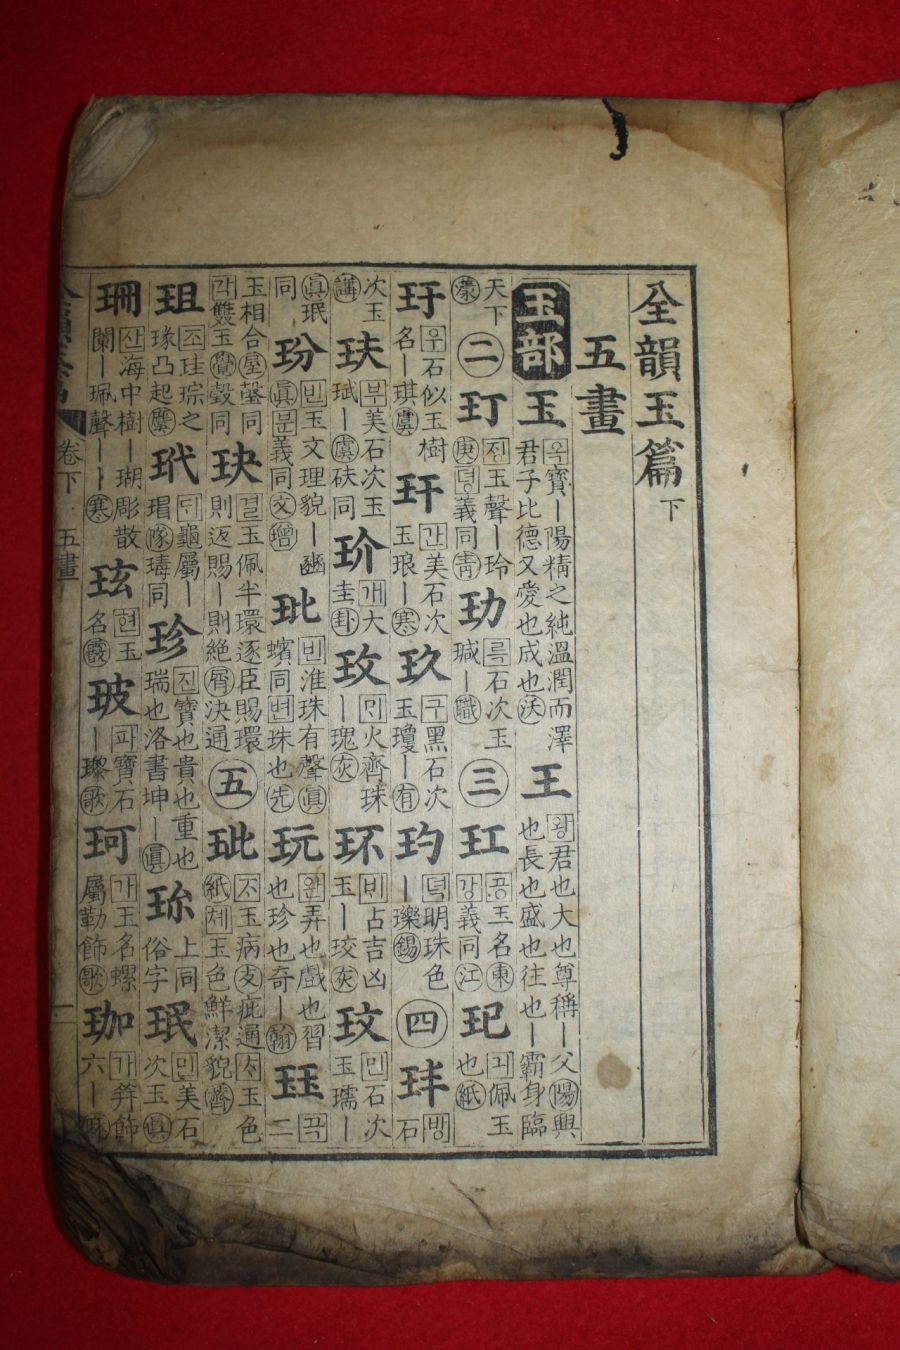 全韻玉篇 下
五畫
玉部 玉 옥寶ー陽精之純溫潤而澤君子比德又愛也成也沃 王 왕君也大也尊稱ー父陽興也長也盛也往也ー霸身臨
天下漾 二 玎 정玉聲ー玲庚뎡義同靑 玏 륵石次玉瑊ー職 三 玒 공玉名東강義同江 玘 긔佩玉也紙
玗 우石似玉樹名ー琪虞 玕 간美石次玉琅ー寒 玖 구黑石次玉瓊ー有 玓 뎍明珠色ー瓅錫 四 玤 방石
次玉講 玞 부美石次玉珷ー虞砆同 玠 개大圭卦 玫 ᄆᆡ火齊珠ー瑰灰 环 ᄇᆡ占吉凶玉ー珓灰 玟 민石次玉瓀ー
眞珉同 玢 빈玉文理貌ー豳眞분義同文 玭 빈淮珠有聲眞蠙同변珠也先 玩 완弄也戲也習也珍也奇ー翰 玨 곡二
玉相合屋瑴同각雙玉覺瑴同 玦 결玉佩半環逐臣賜環則返賜ー則絶屑決通 五 玼 ᄌᆞ玉病支疵通ᄎᆞ玉色紙쳬玉色鮮潔貌齊
珇 조珪琮之瑑凸起麌 玳 ᄃᆡ龜屬ー瑁隊瑇同 珍 진寶也貴也重也瑞也洛書坤ー眞 珎 上同俗字 珉 민美石次玉眞
珊 산海中樹ー瑚彫散闌ー珮聲ーー寒 玹 현玉名霰 玻 파寶石ー瓈歌 珂 가玉名螺屬勒飾歌 珈 가笄飾六ー麻
全韻玉篇 卷下 五畫 一